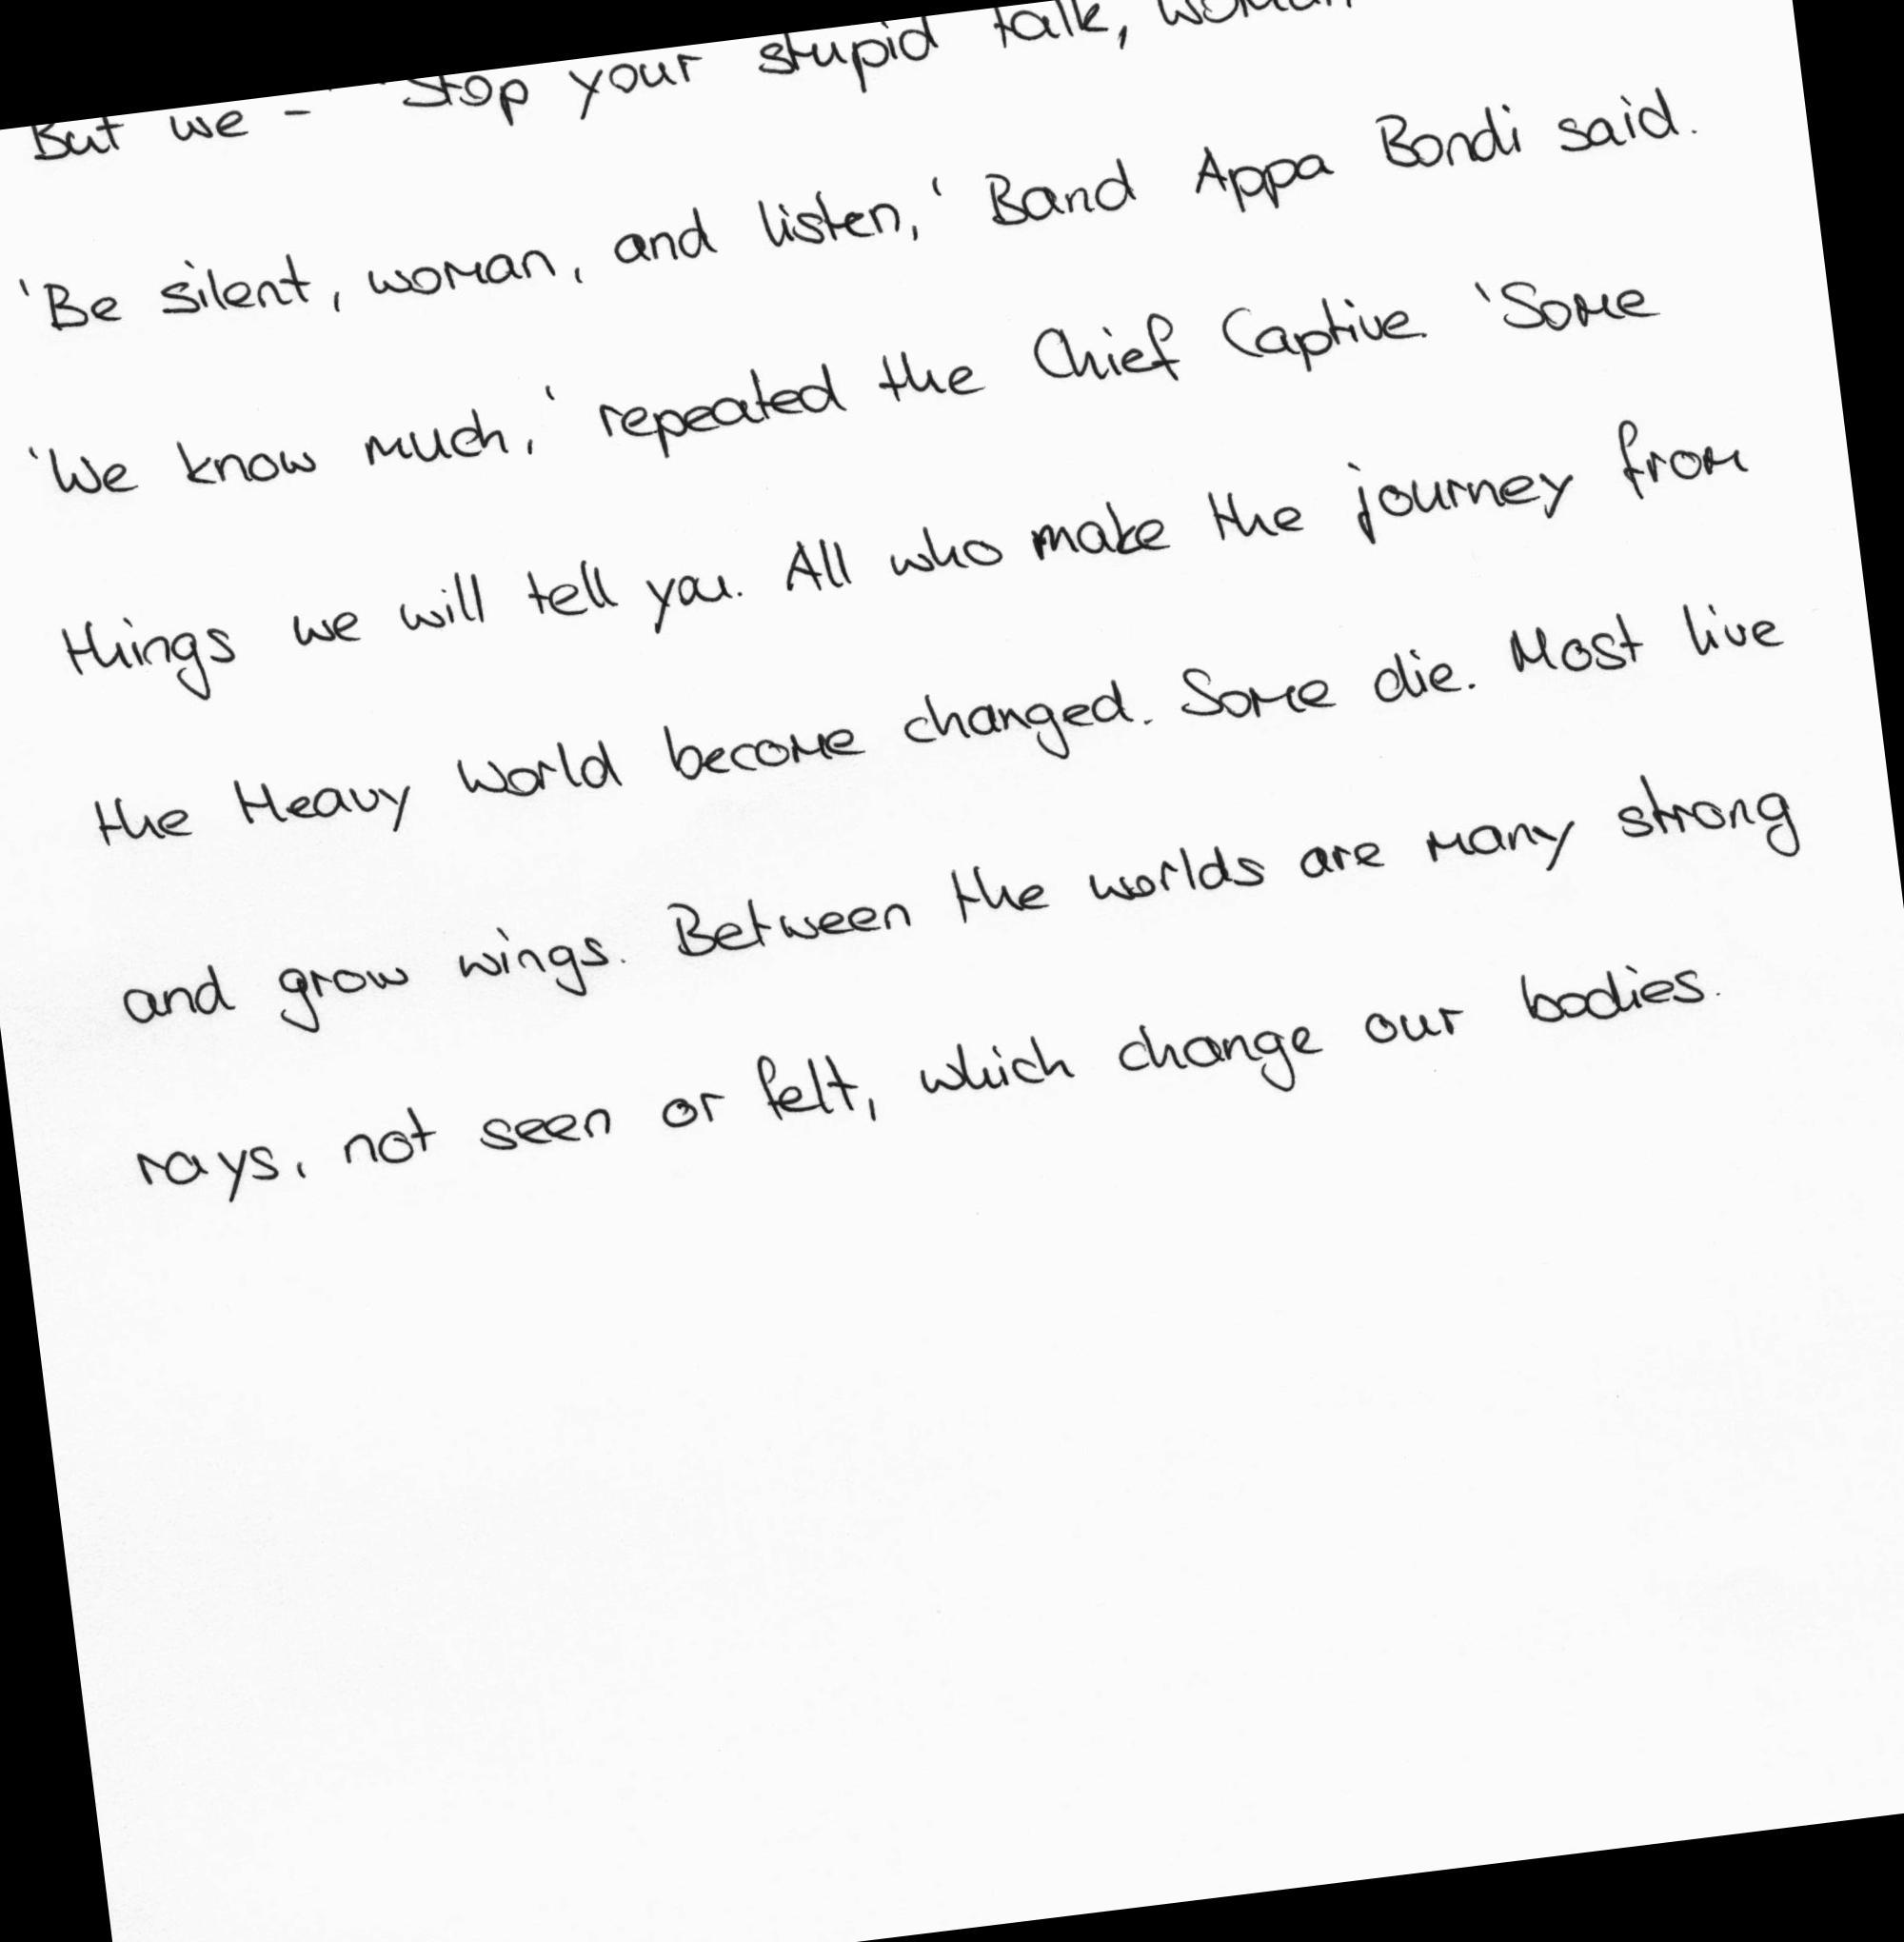 But we - "Stop your stupid talk, woman
'Be silent, woman, and listen,' Band Appa Bondi said.
'We know much,' repeated the Chief Captive. 'Some
things we will tell you. All who make the journey from
the Heavy World become changed. Some die. Most live
and grow wings. Between the worlds are many strong
rays, not seen or felt, which change our bodies.